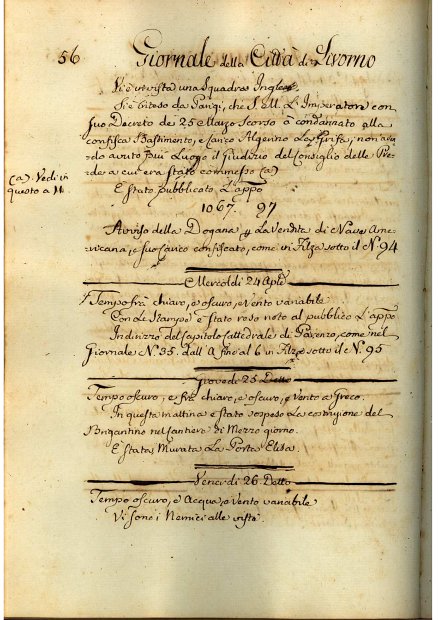 56 Giornale della Città di Livorno
Si è vista una Squadra Inglese.
Si è inteso da Parigi, che S. M. L'Imperatore con
suo Decreto dei 25 Marzo Scorso à condannato alla
confisca Bastimento, e Carico Algerino La Grifa, non aven
do avuto più luogo il Giudizio del Consiglio delle Pre
de a cui era stato commesso (a)
(a). Vedi in
questo a 
È stato pubblicato L'appo
1067. 97
Avviso della Dogana p La Vendita di Nave Ame
ricana, e suo Carico confiscato, come in Filza sotto il N.° 94
Mercoldì 24 Aple
Tempo frà chiaro, e oscuro, e Vento variabile
Con le Stampe è stato reso noto al pubblico L'appo
Indirizzo del Capitolo Cattedrale di Parenzo, come nel
Giornale N.° 35. dall' A fine al 6 in Filza sotto il N.° 95
Giovedì 25 Detto
Tempo oscuro, e frà chiaro, e oscuro, e Vento a Greco.
In questa mattina è stato sospeso La costruzione del
Brigantino nel Cantiere di Mezzo giorno.
È stata Murata La Porta Elisa.
Venerdì 26 Detto
Tempo oscuro, e Acqua, e Vento variabile
Vi sono i Nemici alle viste